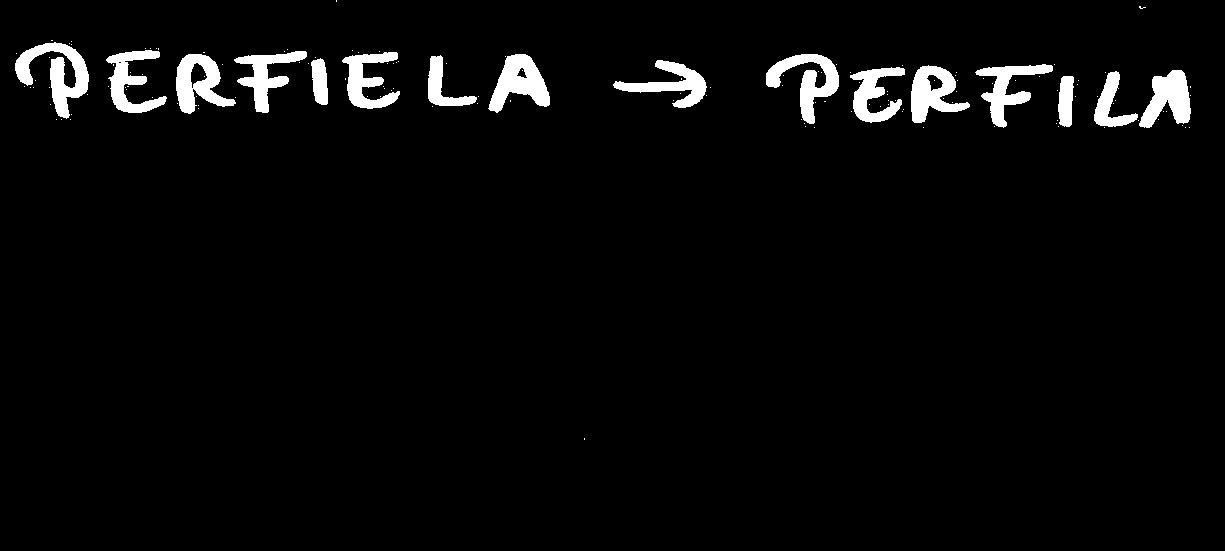 PERFIELA → PERFILA